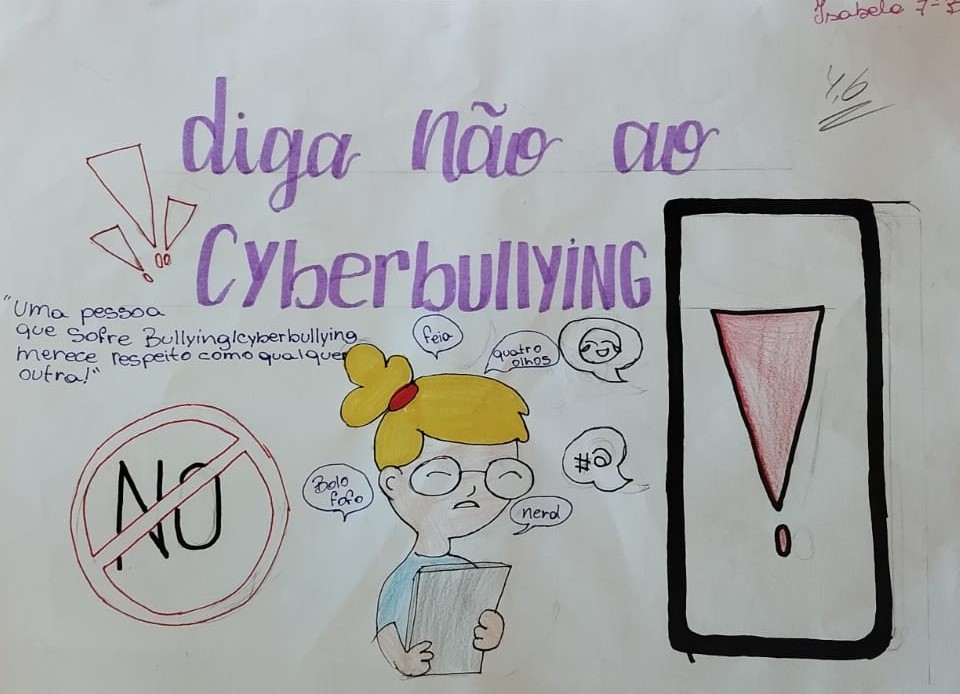 Isabela 7-B
4,6
diga não ao
Cyberbullying
"Uma pessoa
que sofre Bullying/cyberbullying
merece respeito como qualquer
outra!"
feia
quatro
olhos
#@
Bolo
fofo
nerd
NO